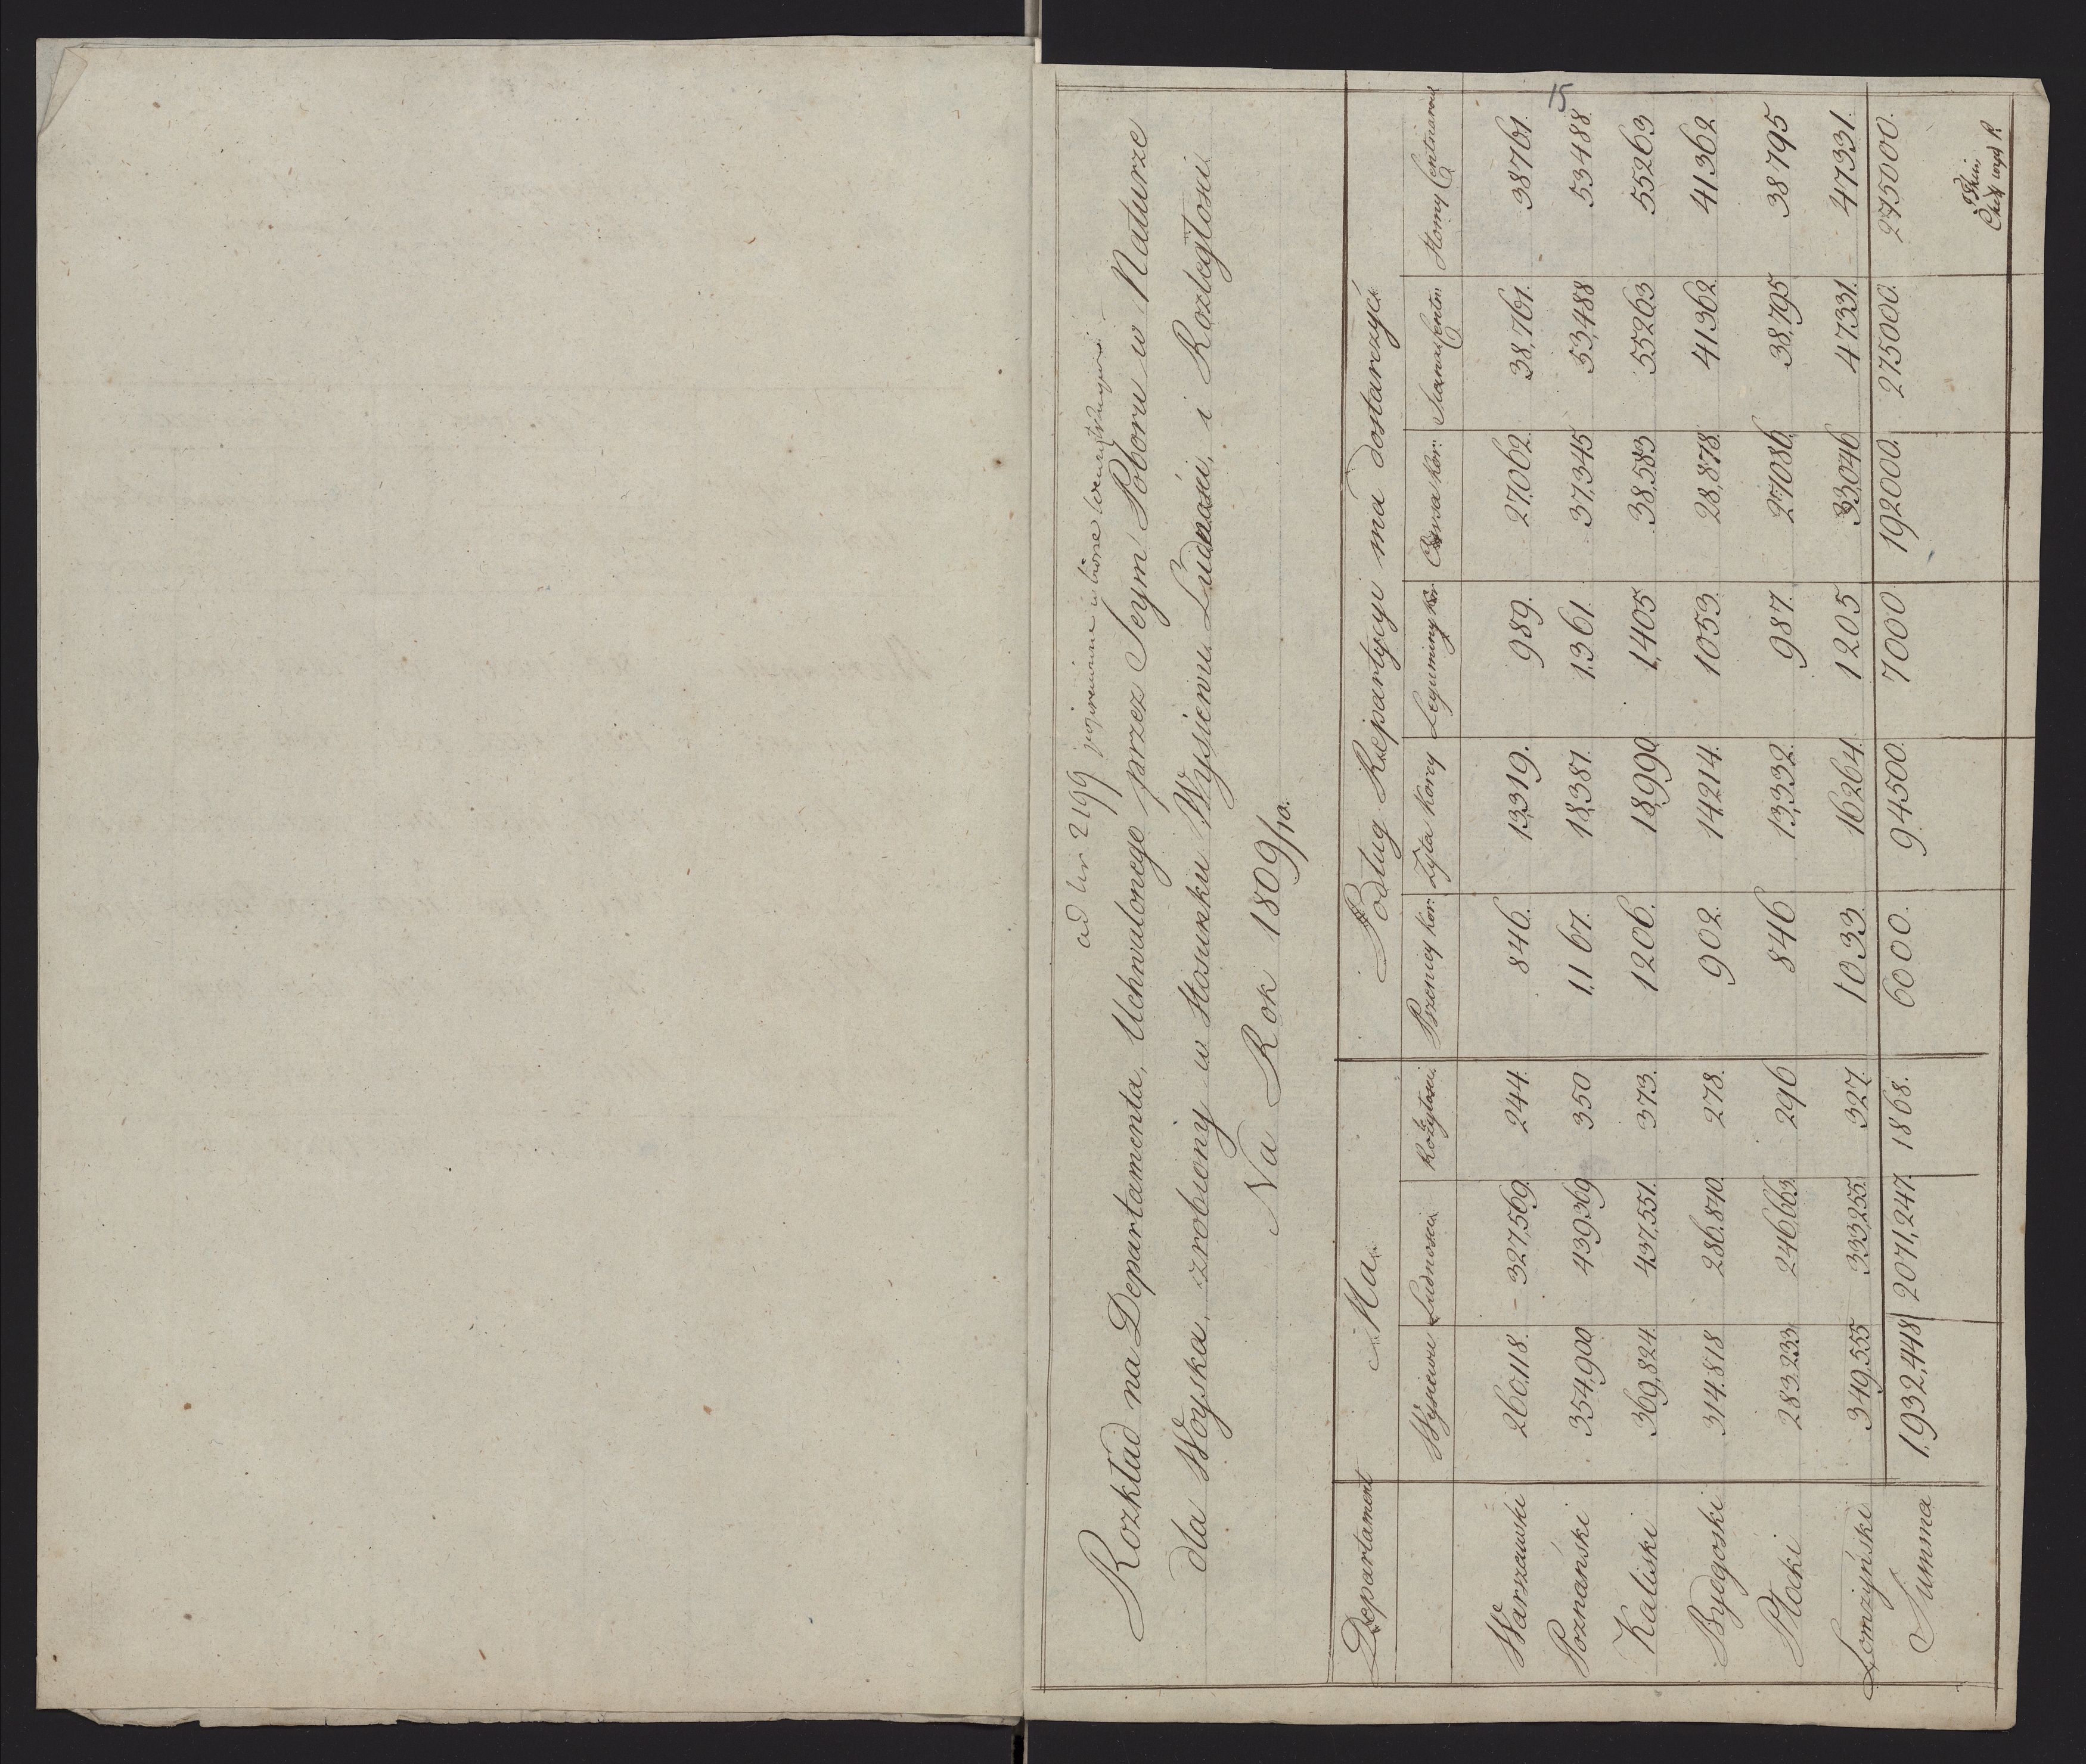 15
ad Nr 2199
Rozkład na Departamenta, Uchwalonego przez Seym Poboru w Naturze
dla Woyska, zrobiony w Stosunku Wysiewu Ludności, i Rozległości
Na Rok 1809/10.
Departament Ma Podług Repartycyi ma dostarczyć
Wysiewu Ludności Rozległości Pszenicy Kor: Żyta Korcy Leguminy Kor Owsa Kor: Siana Centn: Słomy Centnarow
Warszawski 260,118. 327,569. 244. 846. 13,319. 989. 27,062. 38,761. 38761.
Poznański 354,900 439,369 350 1,167. 18,387. 1,361. 37,345 53,488 53488.
Kaliski 369,824. 437,551. 373. 1206. 18,990. 1,405 38,583 55263 55263
Bydgoski 314.818 286,840. 278. 902. 14,214. 1053. 28,878. 41362. 41362.
Płocki 283,233 246,663. 296 846 13,332. 987. 27,086. 38,795 38795
Łomżyński 349,555 333,255. 327. 1033. 16264. 1205 33,046 47331. 47331.
Summa 1,932,448 2071,247. 1868. 6000. 94500. 7000 192000. 275000. 275000.